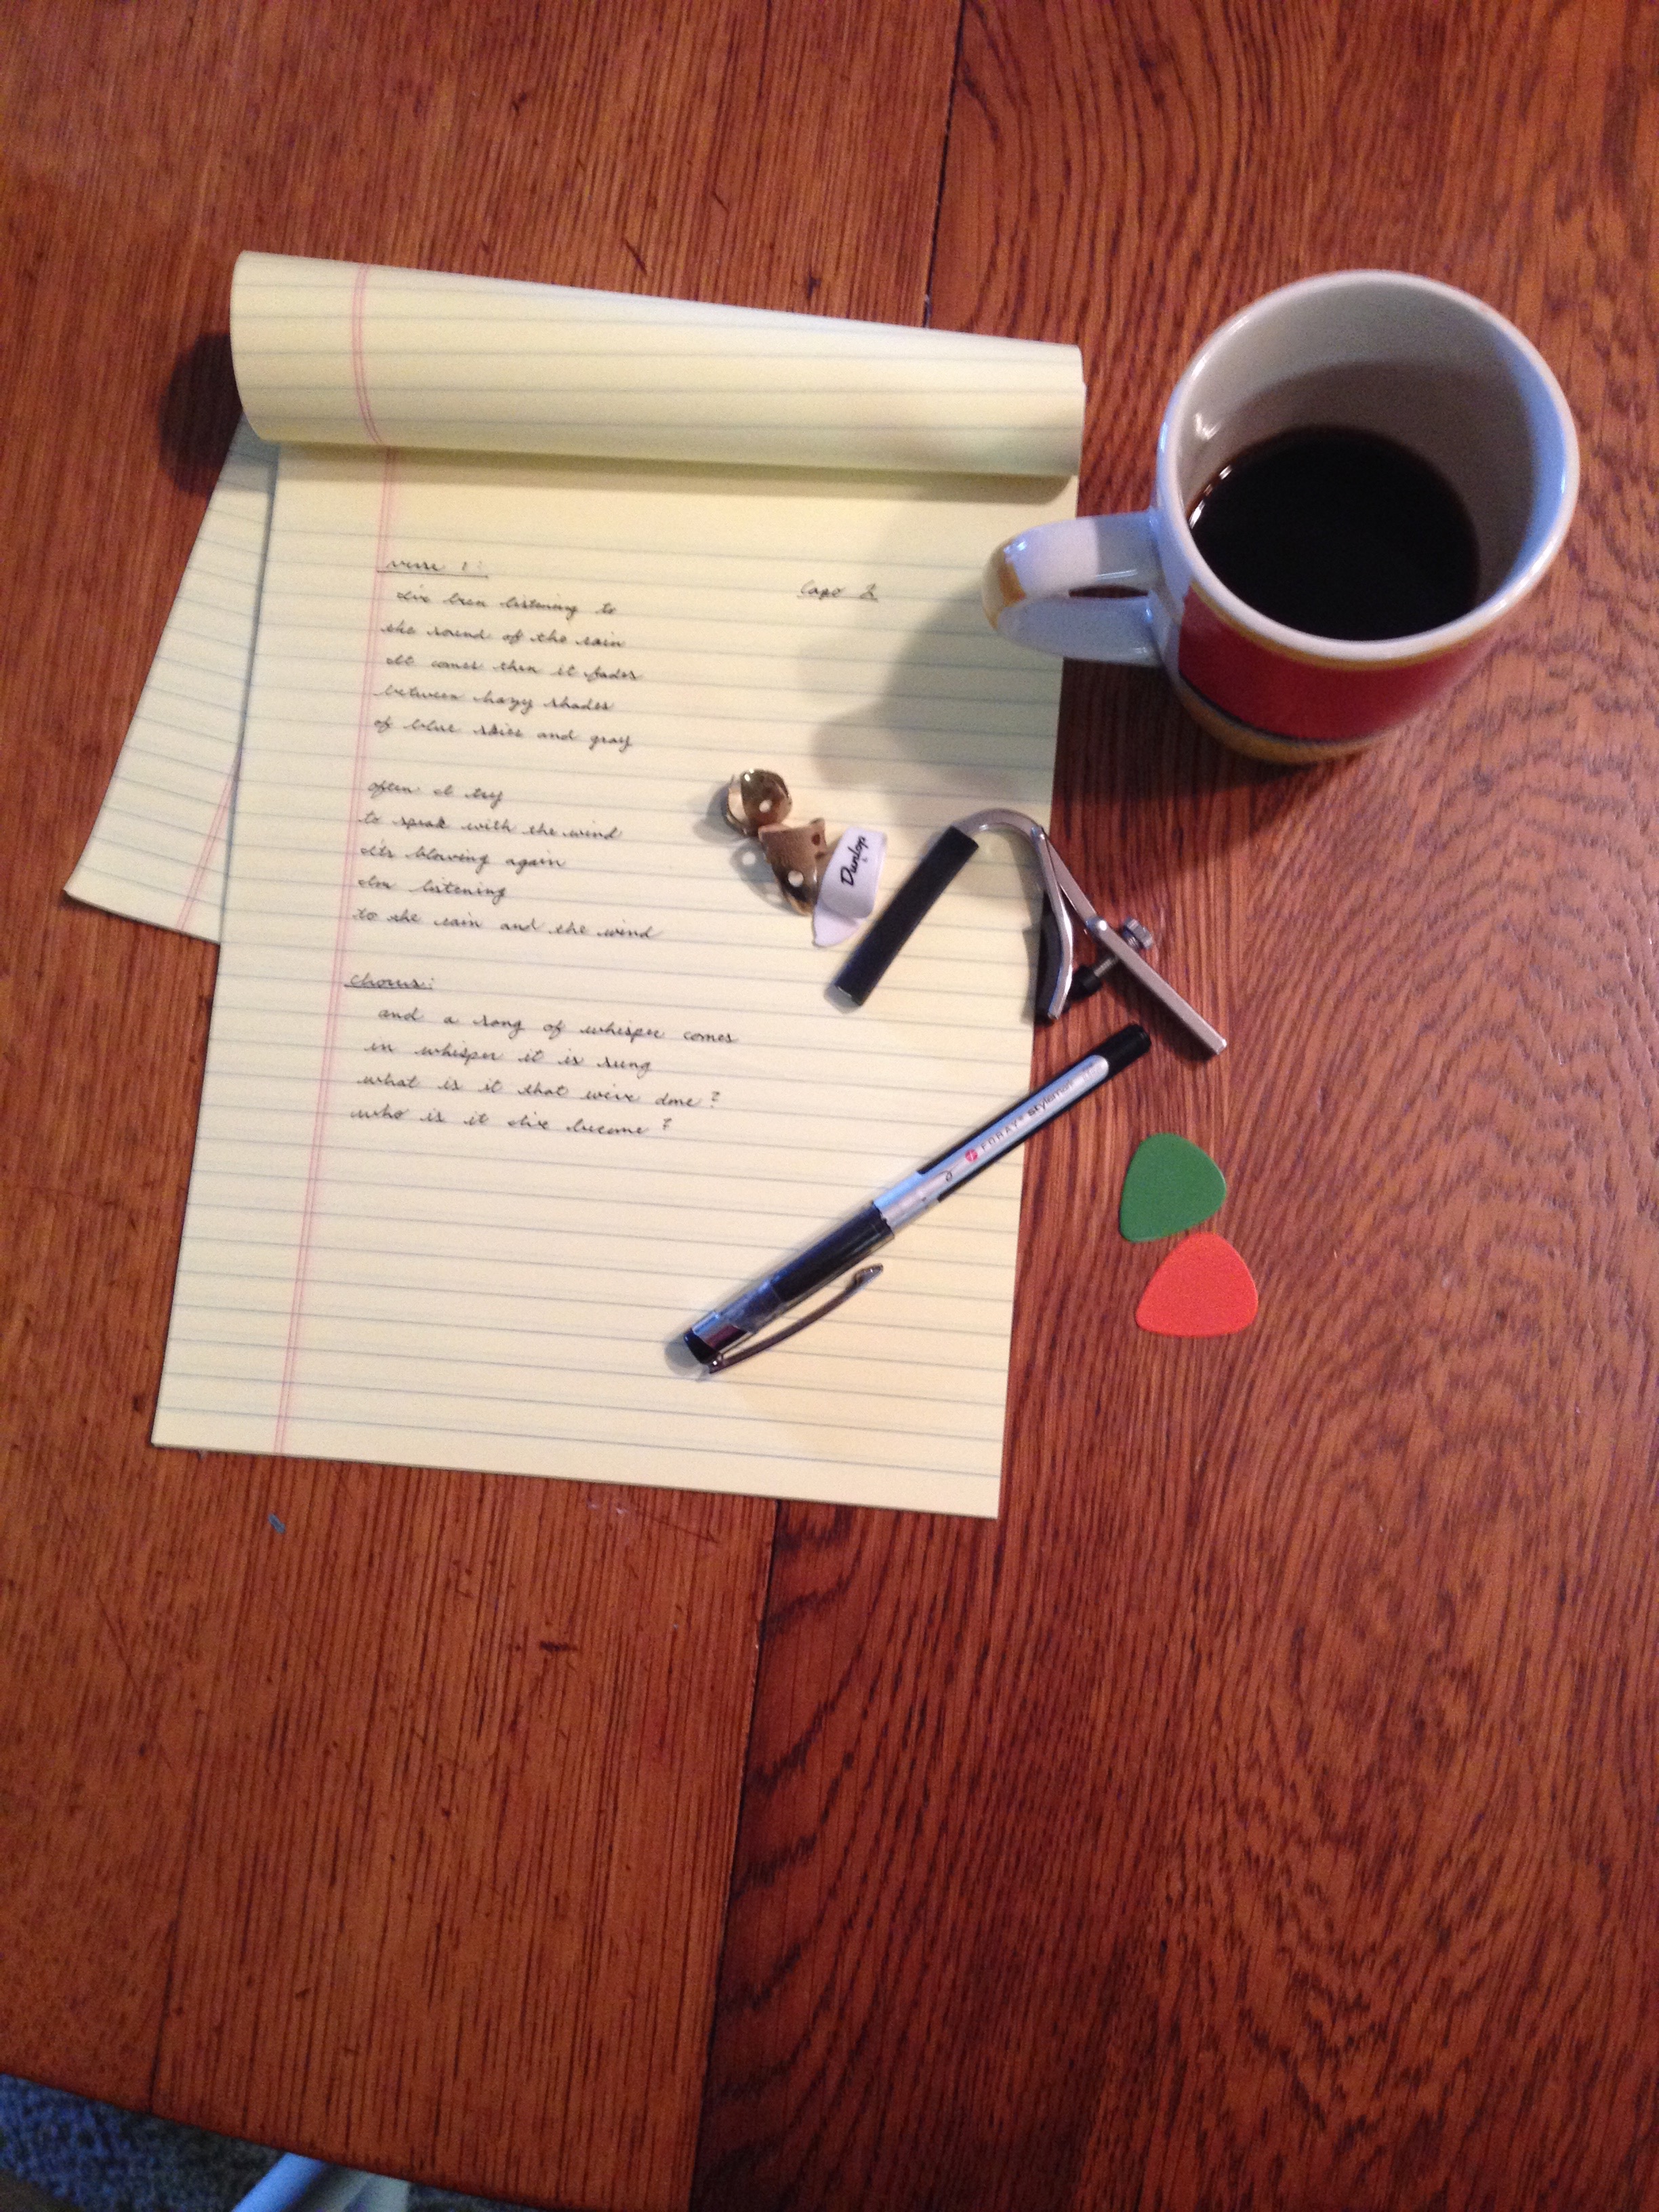 verse 1:
Capo 2
I've been listening to
the sound of the rain
It comes then it fades
between hazy shades
of blue skies and gray
often I try
to speak with the wind
It's blowing again
I'm listening
to the rain and the wind
Dunlop
chorus:
and a song of whisper comes
in whisper it is sung
what is it that we've done?
who is it I've become?
FORAY stylemark